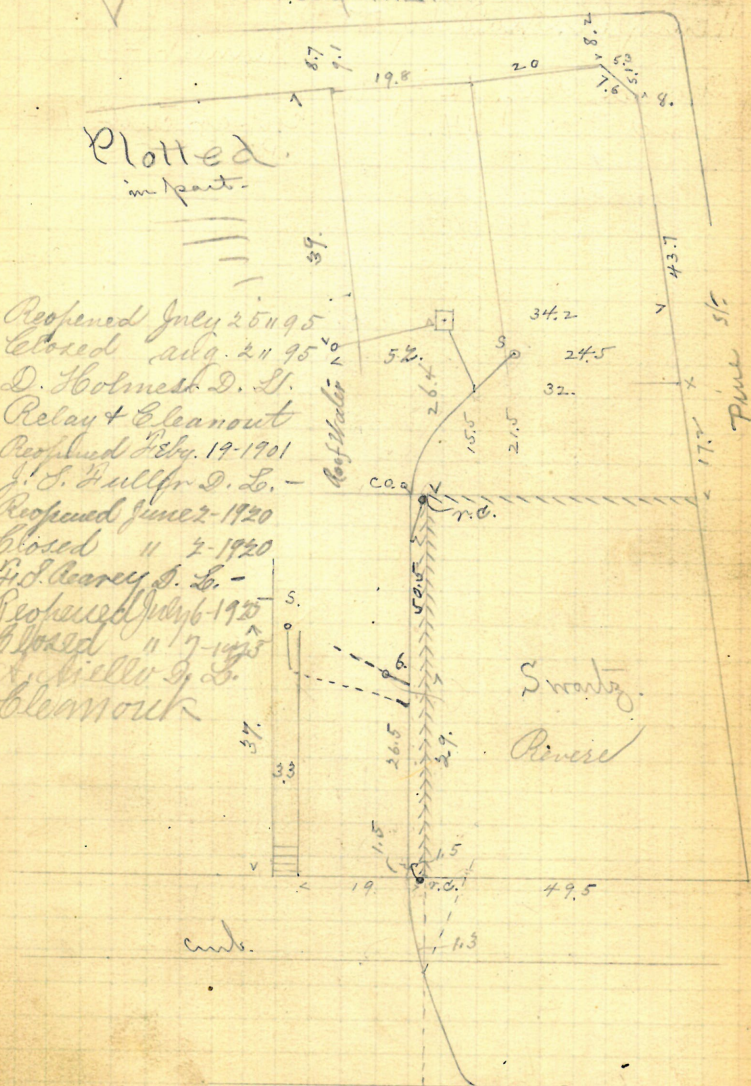 8.7
9.1
19.8
20
8.2
5.0
5.10
7.6
8.
Plotted
in part
39.
43.7
Pine St.
Reopened July 25 " 95
Closed aug. 2 " 95
D. Holmes D. L.
Relay & Cleanout
Reopened Feby. 19-1901
J. S. Fuller D. L. -
Reopened June 2-1920
Closed " 2-1920
F. S. D. L. -
Reopened July 6-1925
Closed " 7-1925
D. L.
Cleanout
Roof Water
10
52.
34.2
S
24.5
26.4
32.
15.5
21.5
17.2
C.O.
r.d.
50.5
S.
6.
Swartz.
Revere
37.
33
26.5
29.
1.5
1.5
19.
r.d.
49.5
curb.
1.3